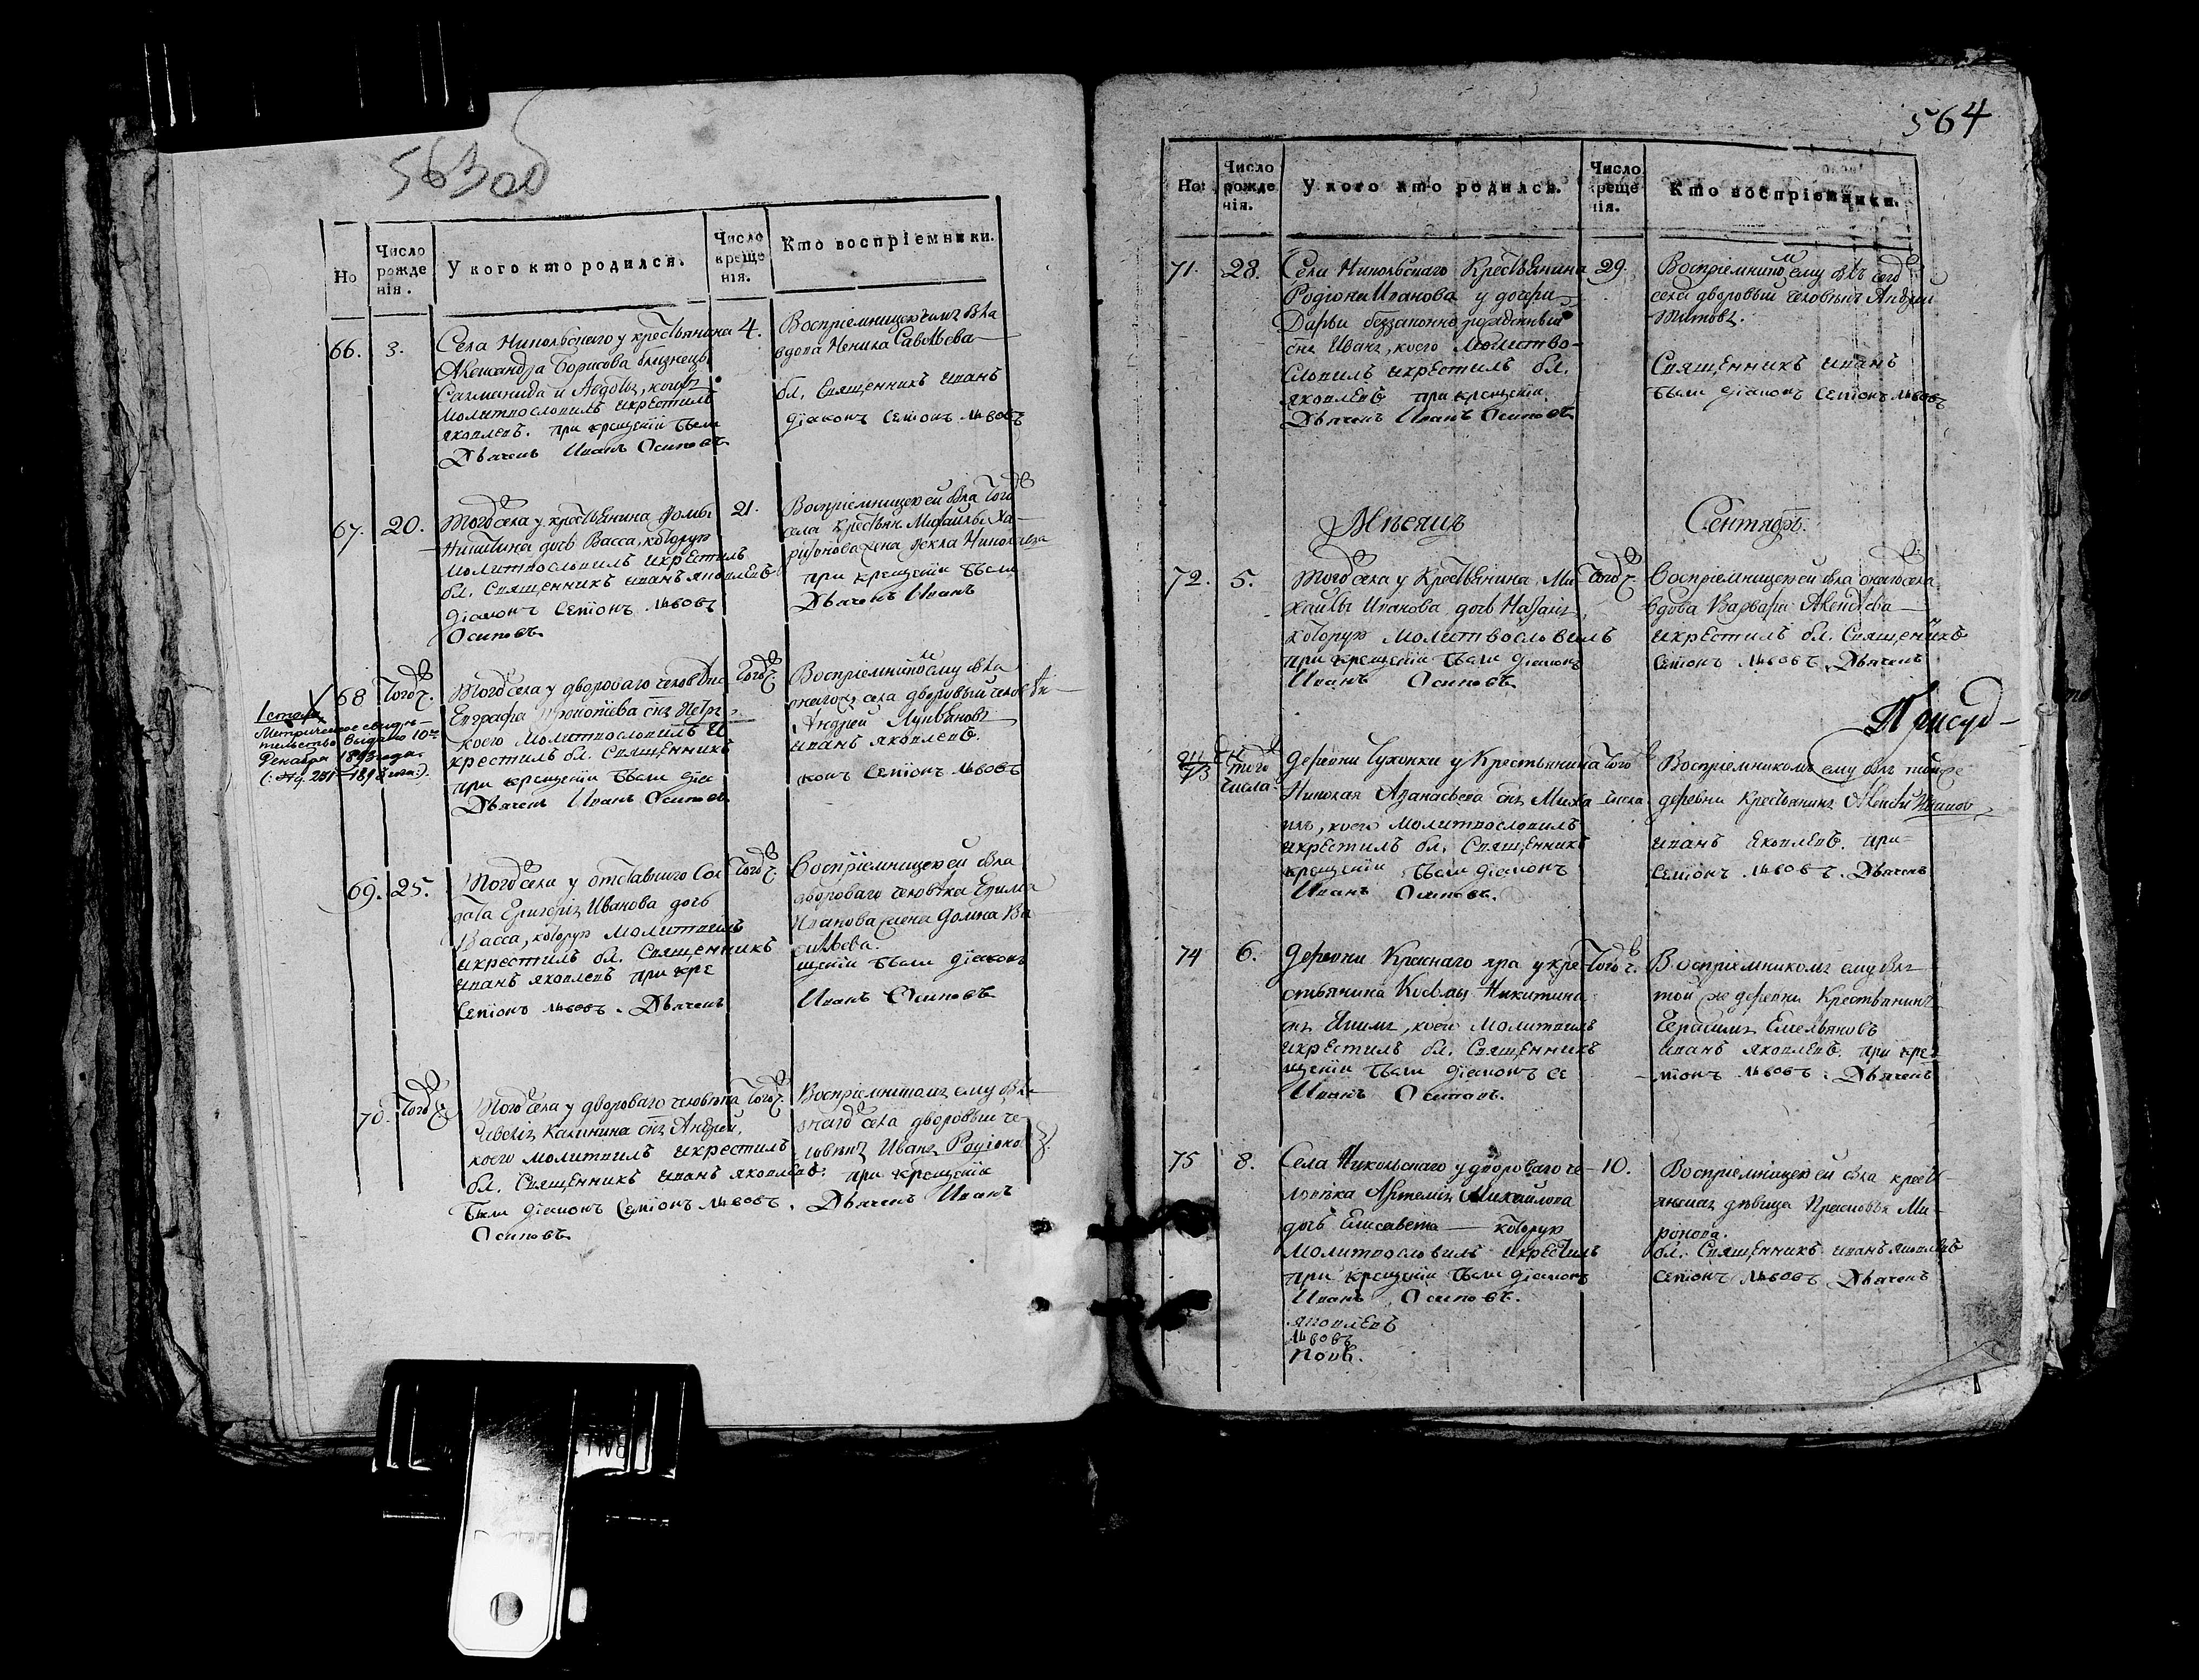 563об
Но
Число рожденія.
У кого кто родился.
Число крещенія.
Кто воспріемники.
66. 3.
Села Никольскаго у крестьянина
Александра Борисова близнецы
молитвословилъ и крестилъ
яковлевъ. при крещеніи были
Дьячекъ Иванъ Осиповъ
4.
вдова Ненила Савельева
бл. Священникъ иванъ
діаконъ Семіонъ Львовъ
67. 20.
Тогожъ села у крестьянина Фомы
Никитина дочь Васса, которую
молитвословилъ и крестилъ
бл. Священникъ иванъ яковлевъ
діаконъ Семіонъ Львовъ
Осиповъ
21.
Воспріемницею ей была тогожъ
села крестьян. Михайлы Ха-
ритонова жена Фекла Николаева
при крещеніи были
Дьячекъ Иванъ
1 стола
Метрическое свидѣ-
тельство выдано 10го
Декабря 1893 года
68 Тогожъ ч.
Тогожъ села у двороваго человѣка
Евграфа Прокопіева снъ Петръ,
коего молитвословилъ и
крестилъ бл. Священникъ
при крещеніи были діа
Дьячекъ Иванъ Осиповъ
Тогожъ ч.
Воспріемникомъ ему былъ
онагожъ села дворовый человѣкъ
Андрей Лукьяновъ
иванъ яковлевъ.
конъ Семіонъ Львовъ
69. 25.
Тогожъ села у отставнаго Сол
дата Григорія Иванова дочь
Васса, которую молитвилъ
и крестилъ бл. Священникъ
иванъ яковлевъ при кре
Семіонъ Львовъ. Дьячекъ
Тогожъ ч.
Воспріемницею ей была
двороваго человѣка Ефима
Иванова жена Домна Ва
сильева.
щеніи были діаконъ
Иванъ Осиповъ
70. Тогожъ ч.
Тогожъ села у двороваго человѣка
Калинина снъ Андрей,
коего молитвилъ и крестилъ
бл. Священникъ иванъ яковлевъ.
были діаконъ Семіонъ Львовъ.
Осиповъ
Тогожъ ч.
Воспріемникомъ ему былъ
онагожъ села дворовый че-
ловѣкъ Иванъ Родіоно
въ.
при крещеніи
Дьячекъ Иванъ
564
Но:
Число рожденія.
У кого кто родился.
Число крещенія.
Кто воспріемники.
71. 28.
Села Никольскаго Крестьянина
Родіона Иванова у дочери
Дарьи беззаконно рожденный
снъ Иванъ, коего молитво-
словилъ и крестилъ бл.
яковлевъ при крещеніи
Дьячекъ Иванъ Осиповъ
29.
Воспріемникомъ ему былъ тогожъ
села дворовый человѣкъ Андрей
Титовъ.
Священникъ иванъ
были діаконъ Семіонъ Львовъ
Мѣсяцъ Сентябрь.
72. 5.
Тогожъ села у Крестьянина Ми-
хайлы Иванова дочь
которую молитвословилъ
при крещеніи были діаконъ
Иванъ Осиповъ
Тогожъ ч.
Воспріемницею ей была онагожъ села
вдова Варвара Алексѣева
и крестилъ бл. Священникъ
Семіонъ Львовъ. Дьячекъ
Присуд-
73 Тогожъ числа
Деревни Сухонки у Крестьянина
Николая Афанасьева снъ Миха
илъ, коего молитвословилъ
и крестилъ бл. Священникъ
крещеніи были діаконъ
Иванъ Осиповъ.
Тогожъ числа
Воспріемникомъ ему былъ тойже
деревни крестьянинъ Алексѣй Ивановъ
иванъ яковлевъ. при-
Семіонъ Львовъ. Дьячекъ
74 6.
Деревни Краснаго яра у кре-
стьянина Космы Никитина
снъ Якимъ, коего молитвилъ
и крестилъ бл. Священникъ
щеніи были діаконъ Се
Иванъ Осиповъ.
Тогожъ ч.
Воспріемникомъ ему былъ
той же деревни Крестьянинъ
Герасимъ Емельяновъ
иванъ яковлевъ. при кре
міонъ Львовъ. Дьячекъ
75 8.
Села Никольскаго у двороваго че-
ловѣка Артемія Михаилова
дочь Елисавета которую
молитвословилъ и крестилъ
при крещеніи были діаконъ
Иванъ Осиповъ.
яковлевъ
Львовъ
10.
Воспріемницею ей была кресть-
янская дѣвица Прасковья Ми-
ронова.
бл. Священникъ иванъ яковлевъ
Семіонъ Львовъ Дьячекъ